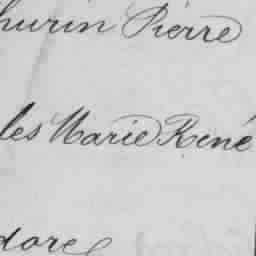 hurin Pierre
les Marie René
dore